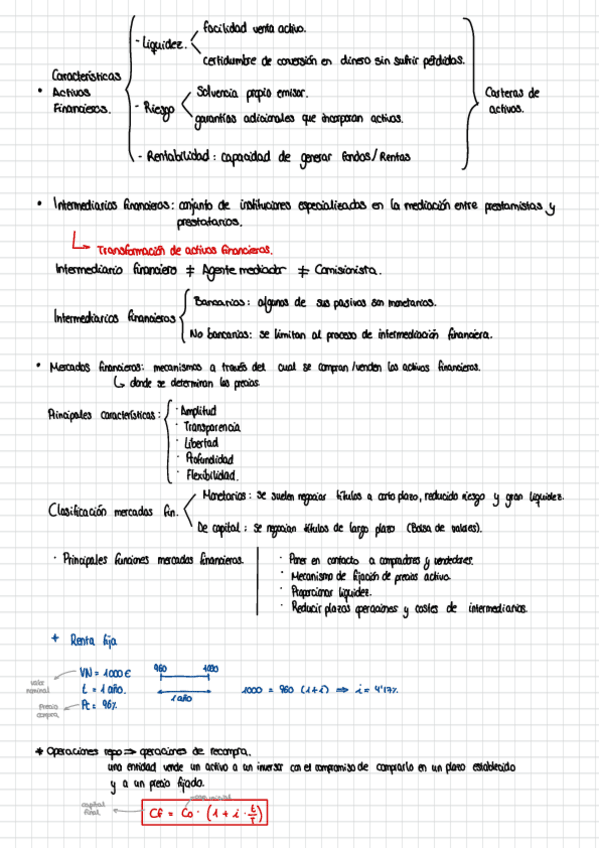 facilidad venta activo.
- Liquidez.
certidumbre de conversión en dinero sin sufrir pérdidas.
Características
• Activos
Financieros.
Solvencia propio emisor.
- Riesgo
garantías adicionales que incorporan activos.
Carteras de
activos.
- Rentabilidad: capacidad de generar fondos/Rentas
• Intermediarios financieros: conjunto de instituciones especializadas en la mediación entre prestamistas y
prestatarios.
Transformación de activos financieros.
Intermediario financiero ≠ Agente mediador ≠ Comisionista.
Intermediarios financieros
Bancarios: algunos de sus pasivos son monetarios.
No bancarios: se limitan al proceso de intermediación financiera.
• Mercados financieros: mecanismos a través del cual se compran/venden los activos financieros.
↳ donde se determinan los precios
Principales características:
· Amplitud
· Transparencia
· Libertad
· Profundidad
· Flexibilidad.
Clasificación mercados fin.
Monetarios: se suelen negociar títulos a corto plazo, reducido riesgo y gran liquidez.
De capital: se negocian títulos de largo plazo (Bolsa de valores).
· Principales funciones mercados financieros.
· Poner en contacto a compradores y vendedores.
· Mecanismo de fijación de precios activo.
· Proporcionar liquidez.
· Reducir plazos operaciones y costes de intermediarios.
+ Renta fija
valor
nominal
VN = 1000€
t = 1 año.
Precio
compra
Pc = 96%
960 1000
1 año
1000 = 960 (1+i) ⇒ i = 4'17%.
* Operaciones repo ⇒ operaciones de recompra.
una entidad vende un activo a un inversor con el compromiso de comprarlo en un plazo establecido
y a un precio fijado.
capital
final
Cf = Co · (1 + i · t/T)